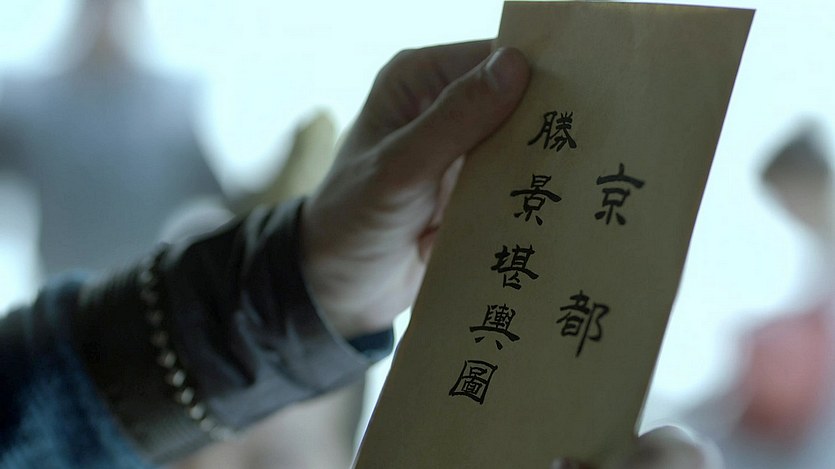 京都
勝景堪輿圖